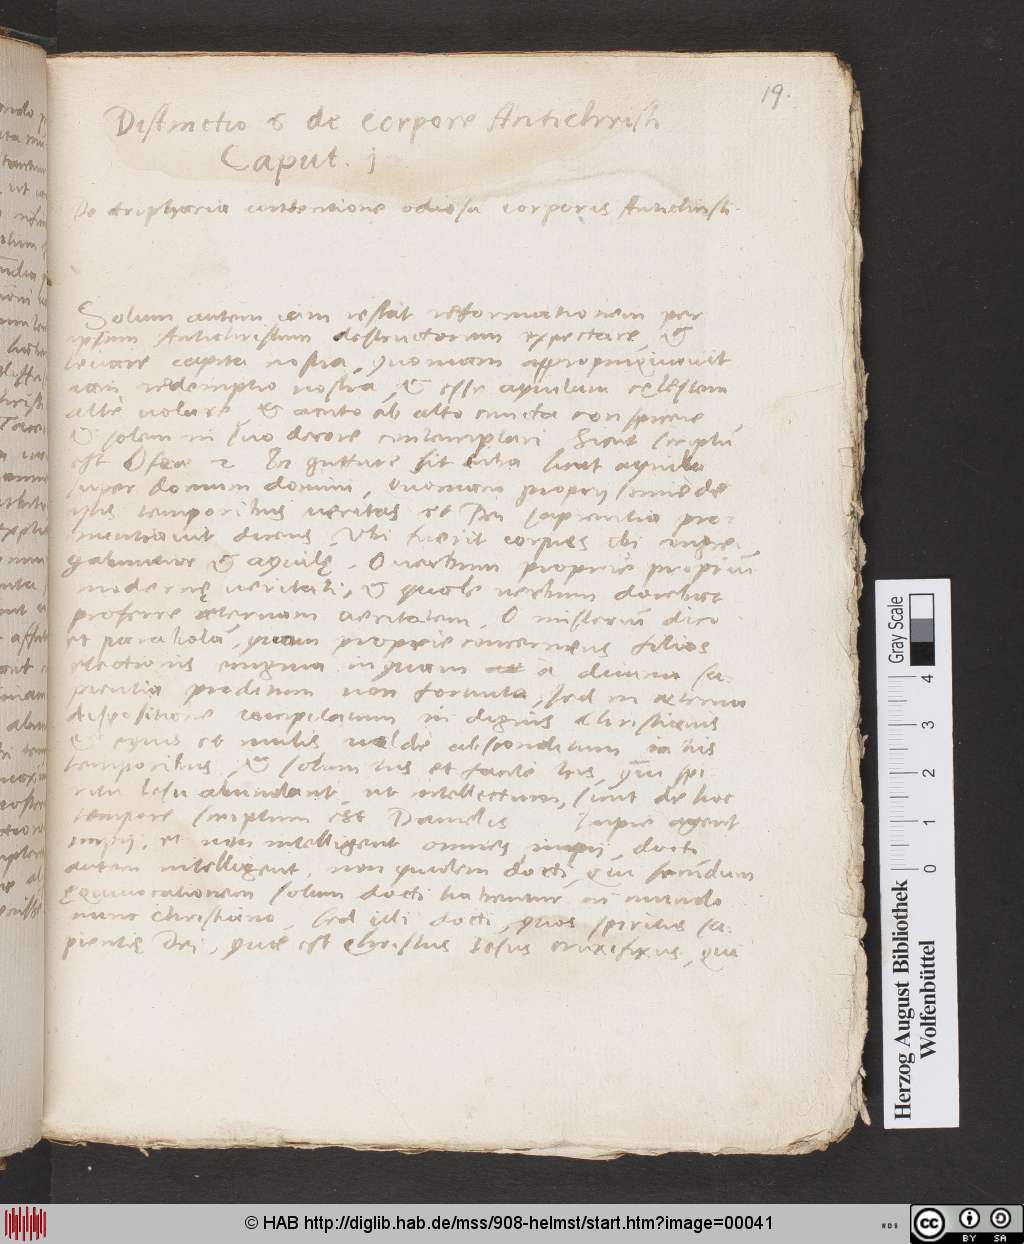 19.
Distinctio 6 de corpore Antichristi
Caput. j
De tripharia contentione odiosa corporis Antichristi.
Solum autem iam restat reformationem per
ipsum Antichristum destructorum expectare, &
levare capita nostra, quoniam appropinquavit
iam redemptio nostra, & esse aquilam cęlestem
alte volare & acuto ab alto cuncta conspicere
& solem in suo decore contemplari Sicut scriptū
est Oseæ 2 In gutture sit tuba sicut aquila
super domum domini, Quoniam proprij
temporibus veritas et Dei sapientia pro-
nuntiavit dicens, Ubi fuerit corpus ibi
gabuntur & aquilę. O verbum proprie propriū
modernę veritati, & quale verbum docebat
proferre æternam veritatem. O misteriū dico
et parabolā, quam proprie concernens filios
electionis enigma inquam a divina sa-
pientia proditum non fortuita, sed in æterna
dispositione compilatum indignis Christianis
& equis et mulis valde absconditum in his
temporibus, & solum his et facile his, qui spi-
ritu Iesu abundant, ut intellectum, sicut de hoc
tempore scriptum est Danielis Impie agent
impij, et non intelligent omnes impij, docti
autem intelligent, non quidem docti, qui secundum
ęquivocationem solum docti habentur in mundo
nunc Christiano, sed illi docti, quos spiritus sa-
pientię Dei, quæ est Christus Iesus crucifixus, qui
Gray Scale
0 1 2 3 4
Herzog August Bibliothek
Wolfenbüttel
© HAB http://diglib.hab.de/mss/908-helmst/start.htm?image=00041
WDB
cc BY SA